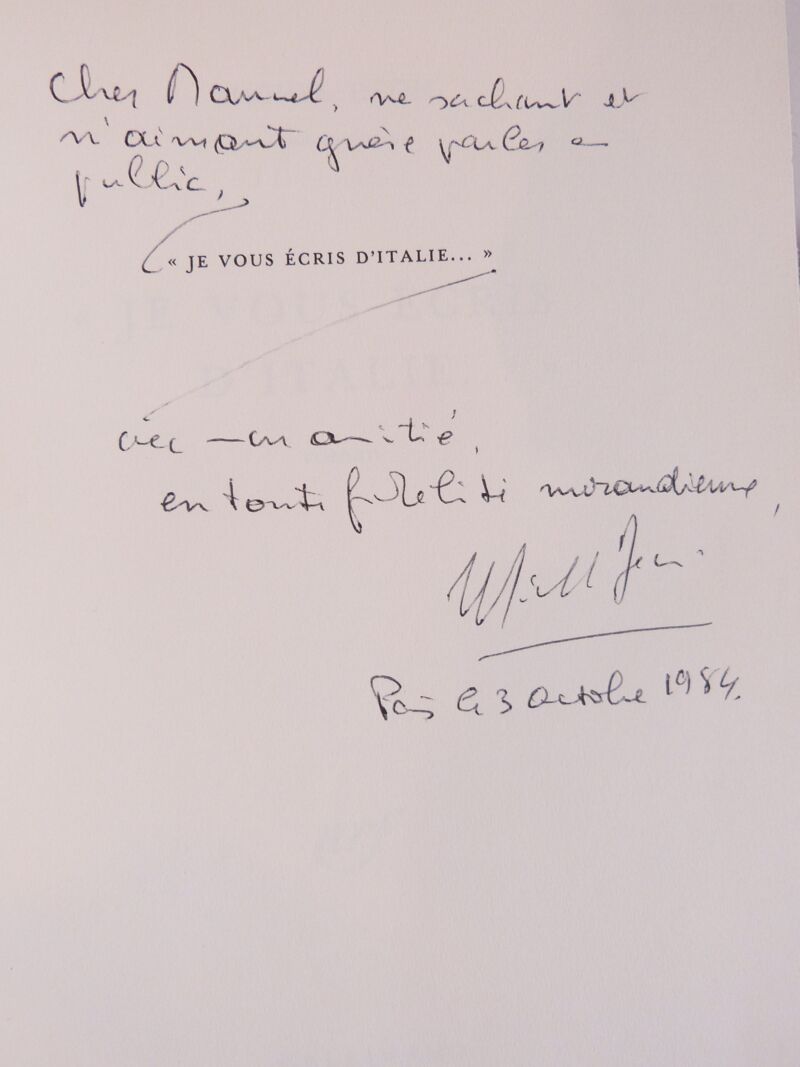 Cher Manuel, ne sachant et
n'aimant guère parler en
public,
« JE VOUS ÉCRIS D'ITALIE... »
avec mon amitié,
en toute fidélité mirandienne,
Michel Déon
Paris le 3 octobre 1984.